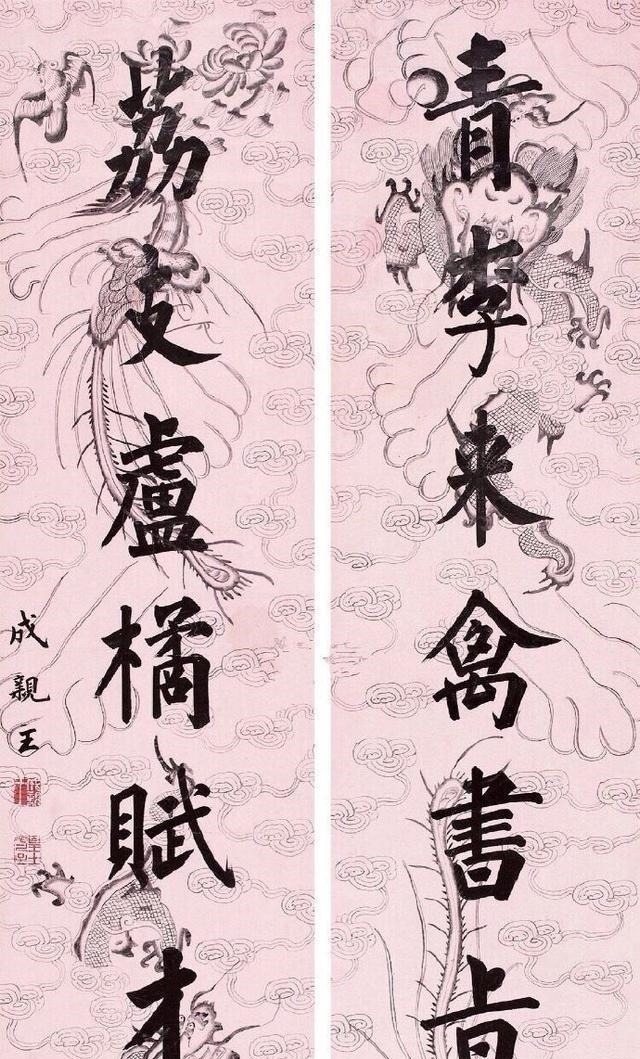 青李来禽書
荔支盧橘賦才
成親王